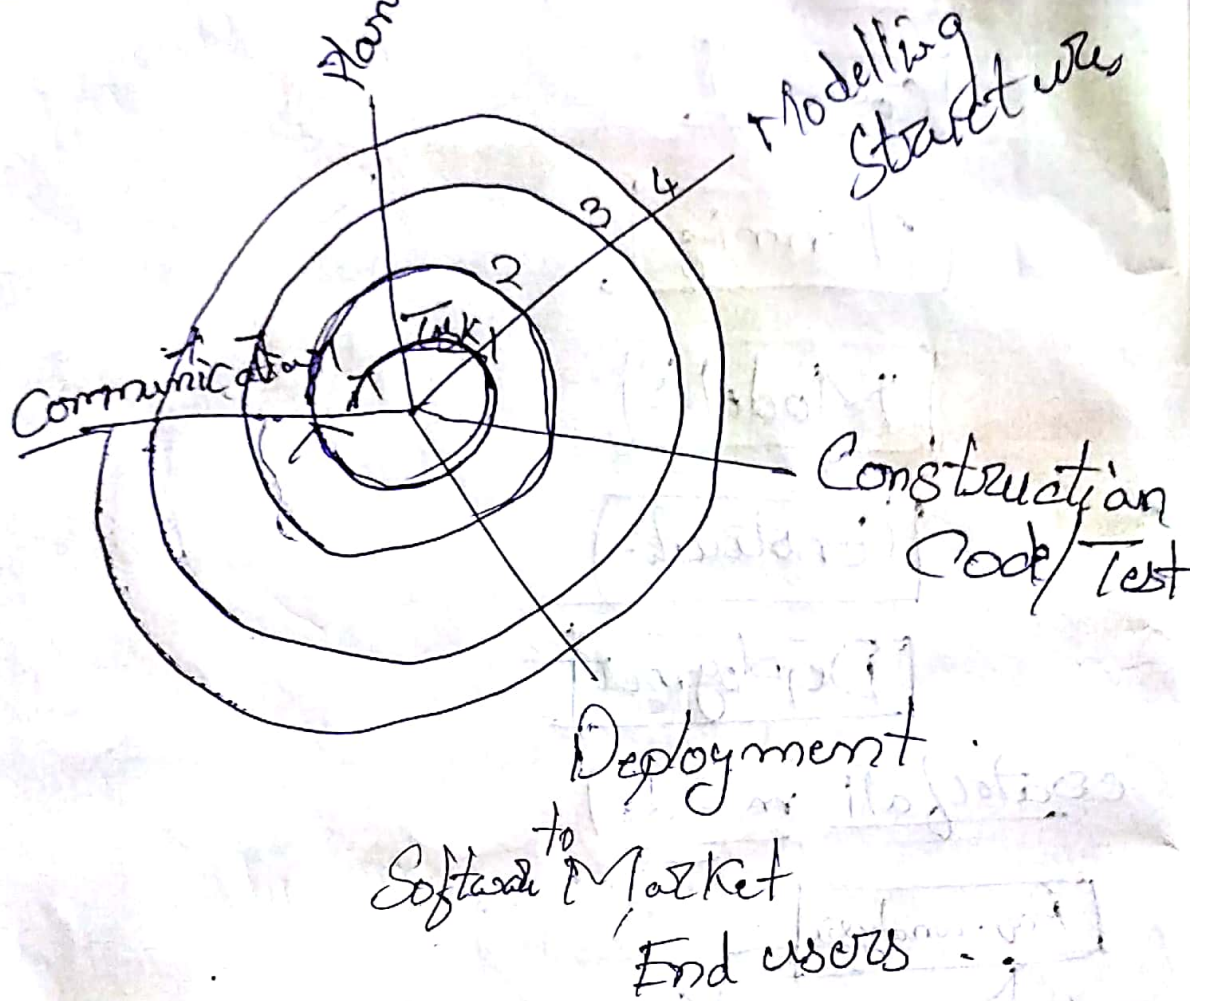 Plan
Modelling
Structures
4
3
2
Task 1
Communication
Construction
Code/Test
Deployment
Software to Market
End users